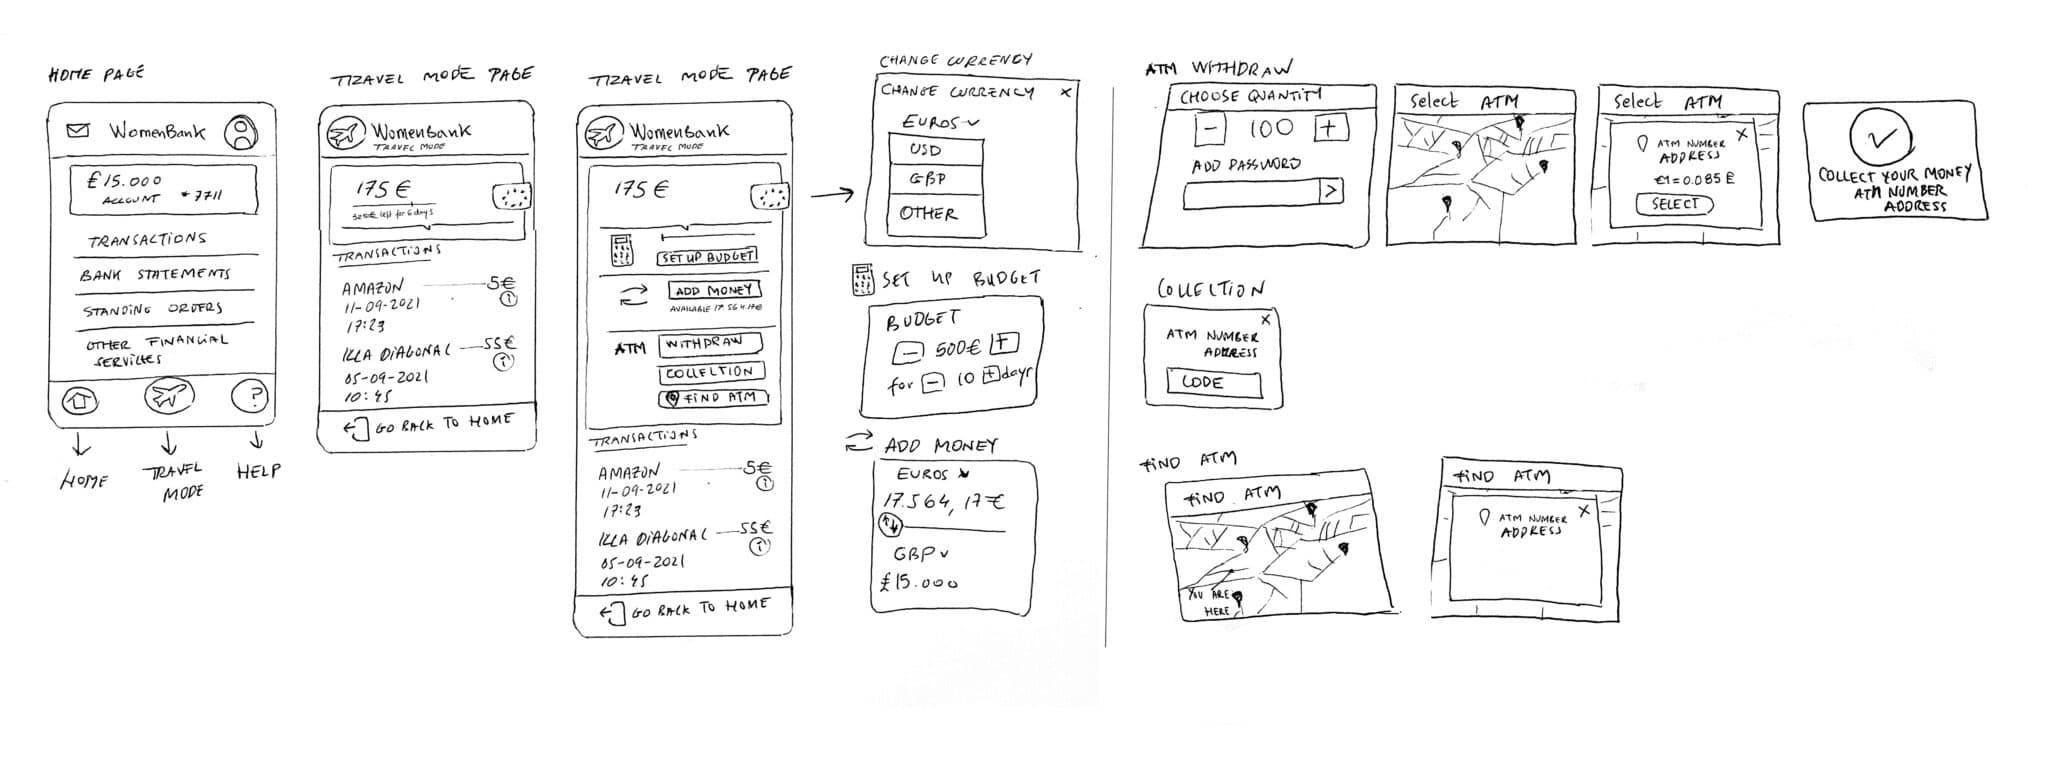 HOME PAGE
WomenBank
£15.000
ACCOUNT *7711
TRANSACTIONS
BANK STATEMENTS
STANDING ORDERS
OTHER FINANCIAL
SERVICES
?
HOME
TRAVEL
MODE
HELP
TRAVEL MODE PAGE
WomenBank
TRAVEL MODE
175€
left for 6 days
TRANSACTIONS
AMAZON 5€
11-09-2021
17:23
i
ILLA DIAGONAL 55€
05-09-2021
10:45
i
GO BACK TO HOME
TRAVEL MODE PAGE
WomenBank
TRAVEL MODE
175€
SET UP BUDGET
ADD MONEY
AVAILABLE 17.564.17€
ATM WITHDRAW
COLLECTION
FIND ATM
TRANSACTIONS
AMAZON 5€
11-09-2021
17:23
i
ILLA DIAGONAL 55€
05-09-2021
10:45
i
GO BACK TO HOME
CHANGE CURRENCY
CHANGE CURRENCY X
EUROS
USD
GBP
OTHER
SET UP BUDGET
BUDGET
- 500€ +
for - 10 + days
ADD MONEY
EUROS
17.564,17€
GBP
£15.000
ATM WITHDRAW
CHOOSE QUANTITY
- 100 +
ADD PASSWORD
>
Select ATM
Select ATM
X
ATM NUMBER
ADDRESS
€1=0.085£
SELECT
COLLECT YOUR MONEY
ATM NUMBER
ADDRESS
COLLECTION
X
ATM NUMBER
ADDRESS
CODE
FIND ATM
FIND ATM
YOU ARE
HERE
FIND ATM
X
ATM NUMBER
ADDRESS